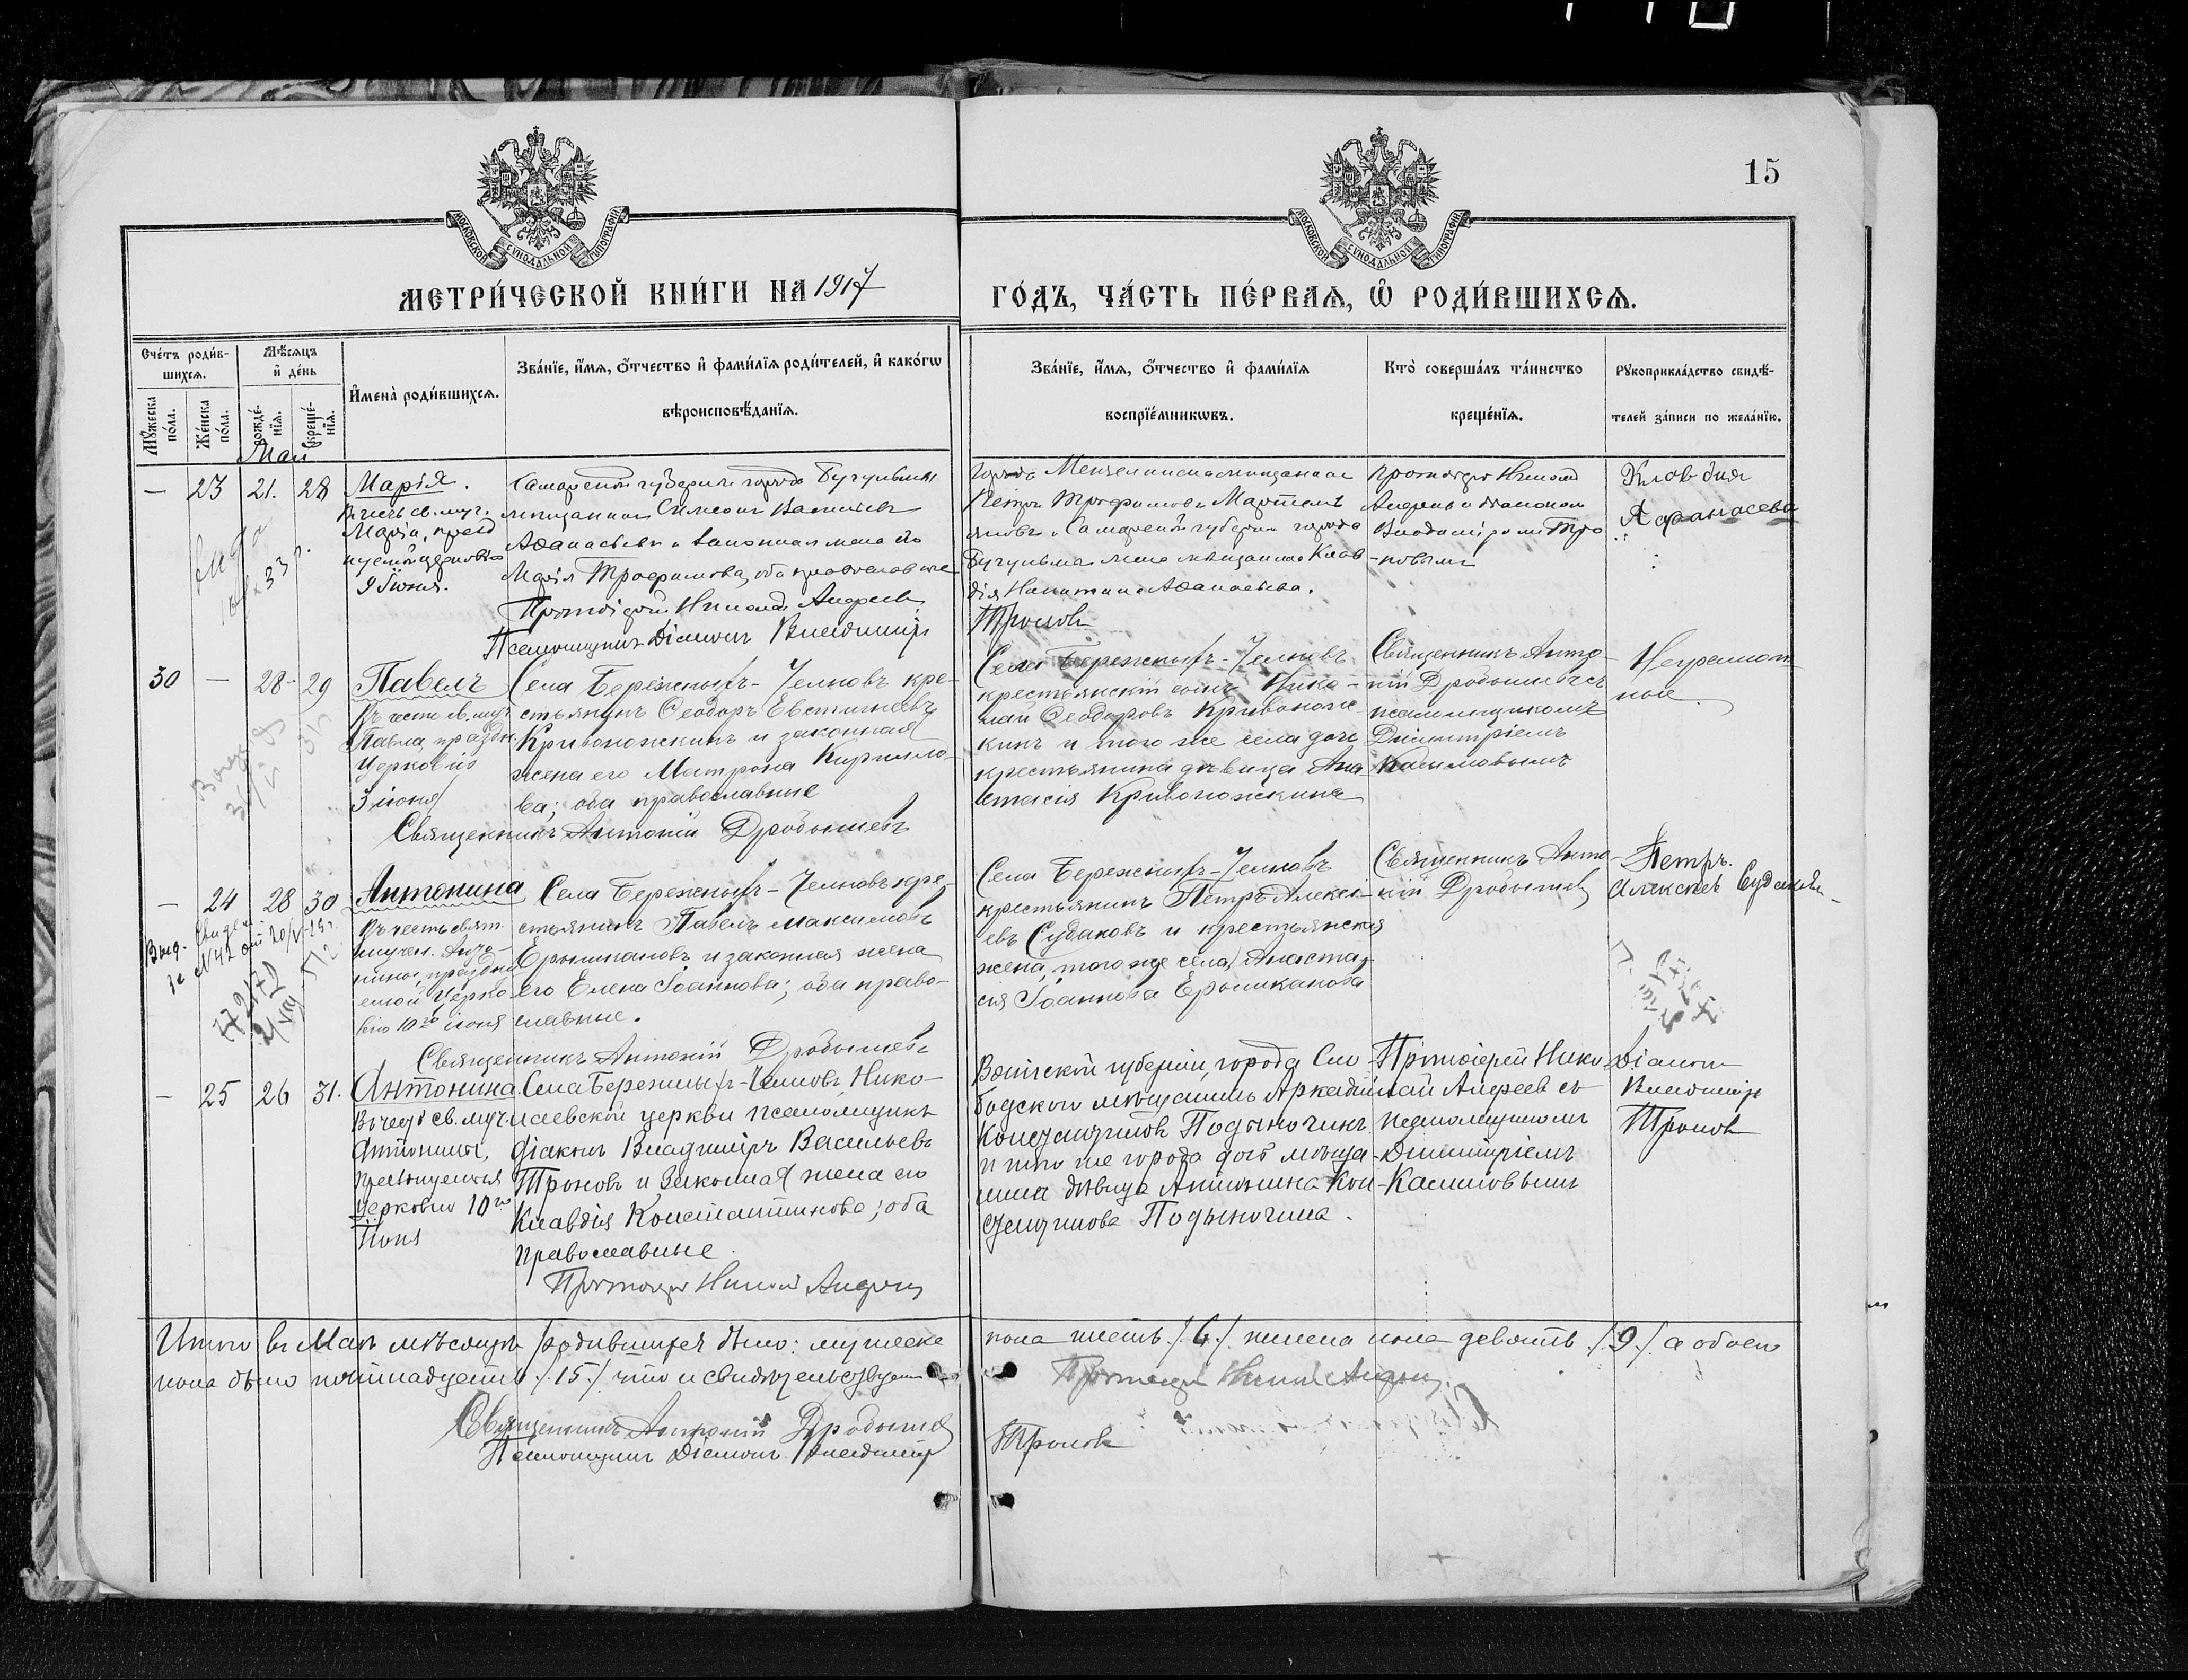 15
МОСКОВСКОЙ СѴНОДАЛЬНОЙ ТИПОГРАФІИ
МОСКОВСКОЙ СѴНОДАЛЬНОЙ ТИПОГРАФІИ
МЕТРИ́ЧЕСКОЙ КНИ́ГИ НА 1917
ГО́ДЪ, ЧА́СТЬ ПЕ́РВАЯ, Ѽ РОДИ́ВШИХСЯ.
Сче́тъ роди́в-
шихся.
Мѣсяцъ
и҆ де́нь
Мꙋ́жеска по́ла.
Же́нска по́ла.
рожде́-нїѧ.
креще́-нїѧ.
И҆мена̀ роди́вшихся.
Зва́нїе, и҆́мѧ, ѻ҆́тчество и҆ фами́лїѧ роди́телей, и҆ како́гѡ
вѣроисповѣ́данїѧ.
Зва́нїе, и҆́мѧ, ѻ҆́тчество и҆ фами́лїѧ
воспрїе́мникѡвъ.
Кто̀ соверша́лъ та́инство
креще́нїѧ.
Рꙋкоприкла́дство свидѣ́-
телей за́писи по жела́нїю.
Май
— 23 21. 28 Марія.
В честь св. муч.
Маріи, празд
нуемой церковью
9 Іюня.
Самарской губерніи города Бугульмы
мещанинъ Симеонъ Васильевъ
Аѳанасьевъ и законная жена его
Марія Трофимова, оба православные
Протоіерей Николай Андреев
Псаломщикъ Діаконъ Владиміръ
города Мензелинска мещанинъ
Петръ Трофимовъ Мартемь
яновъ и Самарской губерніи города
Бугульмы жена мещанина Клав
дія Никитина Аѳанасьева.
Троновъ
Протоіерей Николай
Андреевъ с діакономъ
Владиміромъ Тро
-новымъ
Клавдия
Афанасева
30 — 28 29 Павелъ
Въ честь св. муч
Павла, праздн.
Церковію
3 іюня
Села Бережныхъ-Челновъ кре-
стьянинъ Ѳеодоръ Евстигнеевъ
Кривоножкинъ и законная
жена его Матрона Кирилло-
ва; оба православные
Священникъ Антоній Дробышевъ
Села Бережныхъ-Челновъ
крестьянскій сынъ Нико-
лай Ѳеодоровъ Кривонож
кинъ и того же села дочь
крестьянина девица Ана
стасія Кривоножкина
Священникъ Анто-
ній Дробышевъ съ
псаломщикомъ
Димитріемъ
Касимовымъ
Неграмот
ные
— 24 28 30 Антонина
Въ честь свят.
мучен. Анто-
нины, праздну
емой Церко
вію 10го іюня
Выд. свидет.
за № 42 от 20/V-25 г.
Села Бережныхъ-Челновъ кре-
стьянинъ Павелъ Максимовъ
Ермишкановъ и законная жена
его Елена Іоаннова; оба право-
славные.
Священникъ Антоній Дробышевъ
Села Бережныхъ-Челновъ
крестьянинъ Петръ Алексѣ-
евъ Судаковъ и крестьянская
жена, того же села, Анаста
сія Іоаннова Ермишканова
Священникъ Анто-
ній Дробышевъ
Петръ.
Алексѣев Судаковъ
— 25 26 31. Антонина
Въ честь св. муч.
Антонины,
празднуемыя
Церковію 10го
Іюня
Села Бережныхъ-Челновъ, Нико-
лаевской церкви псаломщикъ
діаконъ Владиміръ Васильевъ
Троновъ и Законная жена его
Клавдія Константинова; оба
православные.
Протоіерей Николай Андреевъ
Вятской губерніи, города Сло-
бодского мѣщанинъ Аркадій
Константиновъ Подыночинъ
и того же города дочь мѣща-
нина девица Антонина Кон-
стантинова Подыночина.
Протоіерей Нико-
лай Андреев съ
псаломщикомъ
Димитріемъ
Касимовымъ
Діаконъ
Владиміръ
Троновъ
Итого въ Маѣ мѣсяцѣ родившихся было: мужеска
пола шесть /6/ женска пола девять /9/ а обоего
пола было пятнадцать /15/ что и свидѣтельствуемъ
Протоіерей Николай Андреевъ
Священникъ Антоній Дробышев
Псаломщикъ Діаконъ Владиміръ
Троновъ